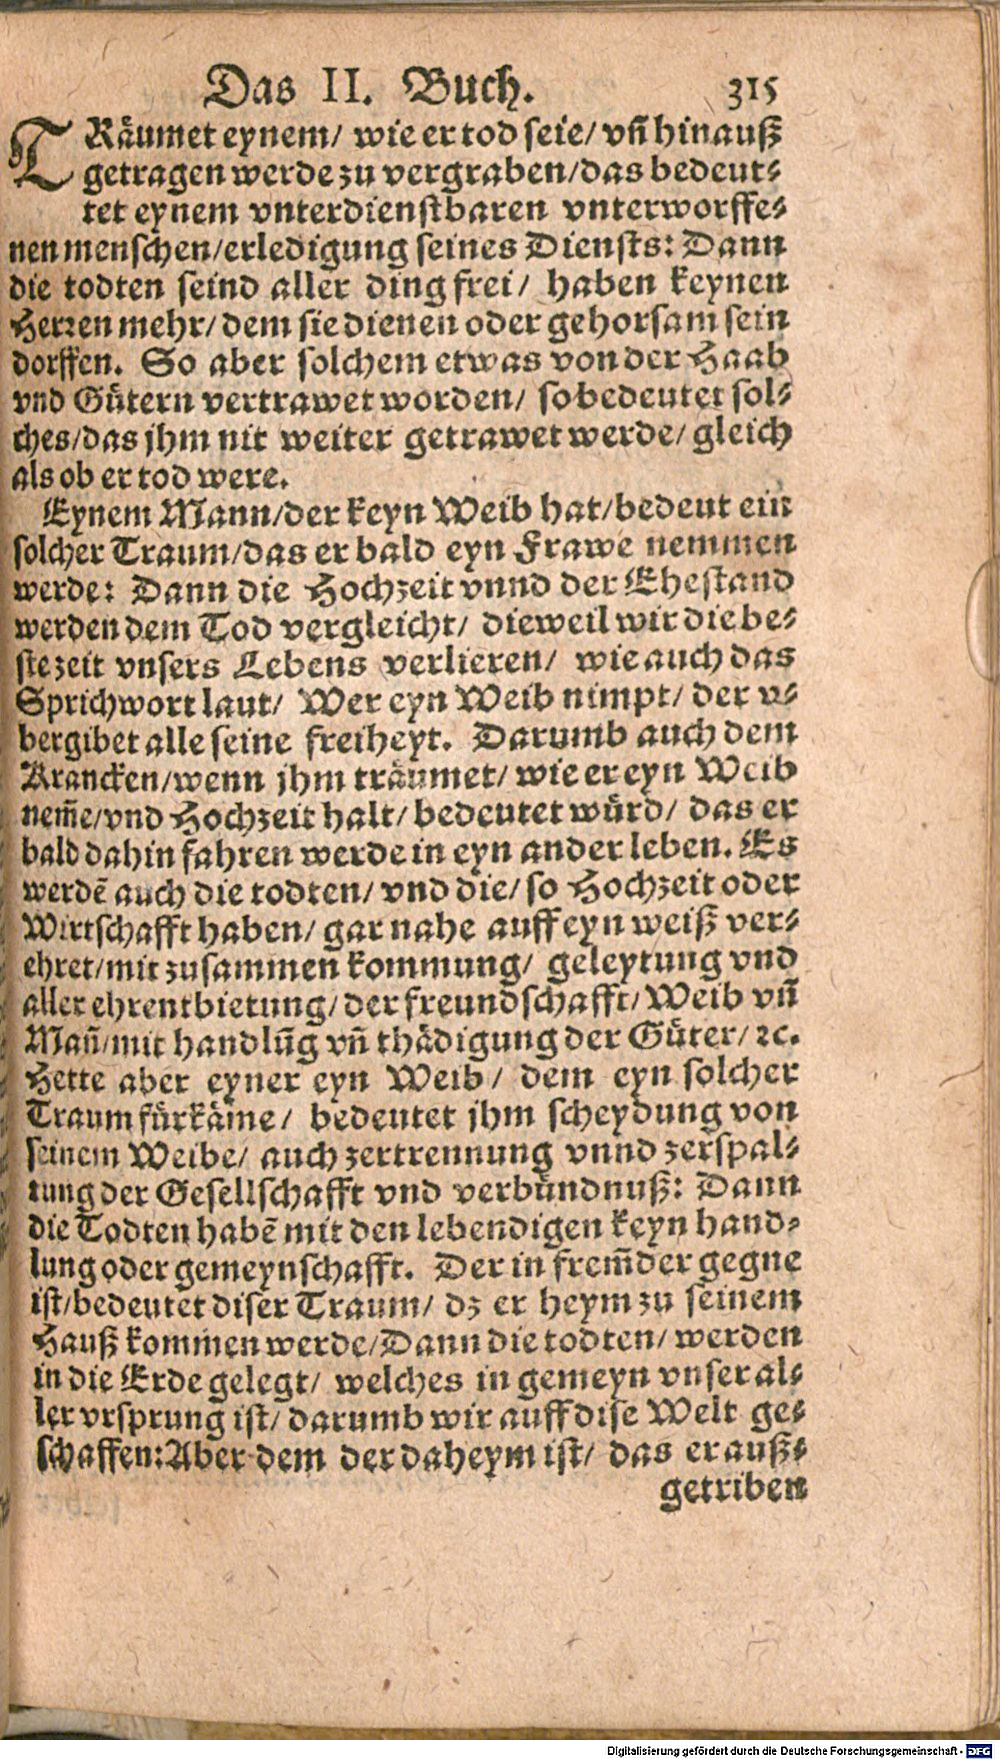 Das II. Buch. 315
TRäumet eynem/ wie er tod seie/ vñ hinauß
getragen werde zu vergraben/das bedeut⸗
tet eynem vnterdienstbaren vnterworffe⸗
nen menschen/erledigung seines Diensts: Dann
die todten seind aller ding frei/ haben keynen
Herren mehr/ dem sie dienen oder gehorsam sein
dorffen. So aber solchem etwas von der Haab
vnd Gütern vertrawet worden/ so bedeutet sol⸗
ches/das jhm nit weiter getrawet werde/ gleich
als ob er tod were.
Eynem Mann/der keyn Weib hat/bedeut ein
solcher Traum/das er bald eyn Frawe nemmen
werde: Dann die Hochzeit vnnd der Ehestand
werden dem Tod vergleicht/ dieweil wir die be⸗
ste zeit vnsers Lebens verlieren/ wie auch das
Sprichwort laut/ Wer eyn Weib nimpt/ der v⸗
bergibet alle seine freiheyt. Darumb auch dem
Krancken/wenn jhm träumet/ wie er eyn Weib
nem̃e/vnd Hochzeit halt/ bedeutet würd/ das er
bald dahin fahren werde in eyn ander leben. Es
werdẽ auch die todten/ vnd die/ so Hochzeit oder
Wirtschafft haben/ gar nahe auff eyn weiß ver⸗
ehret/mit zusammen kommung/ geleytung vnd
aller ehrentbietung/ der freundschafft/ Weib vñ
Mañ/mit handlũg vñ thädigung der Güter/ ꝛc.
Hette aber eyner eyn Weib/ dem eyn solcher
Traum fürkäme/ bedeutet jhm scheydung von
seinem Weibe/ auch zertrennung vnnd zerspal⸗
tung der Gesellschafft vnd verbündnuß: Dann
die Todten habẽ mit den lebendigen keyn hand⸗
lung oder gemeynschafft. Der in frem̃der gegne
ist/bedeutet diser Traum/ dz er heym zu seinem
Hauß kommen werde/Dann die todten/ werden
in die Erde gelegt/ welches in gemeyn vnser al⸗
ler vrsprung ist/ darumb wir auff dise Welt ge⸗
schaffen:Aber dem der daheym ist/ das er auß⸗
getriben
Digitalisierung gefördert durch die Deutsche Forschungsgemeinschaft - DFG